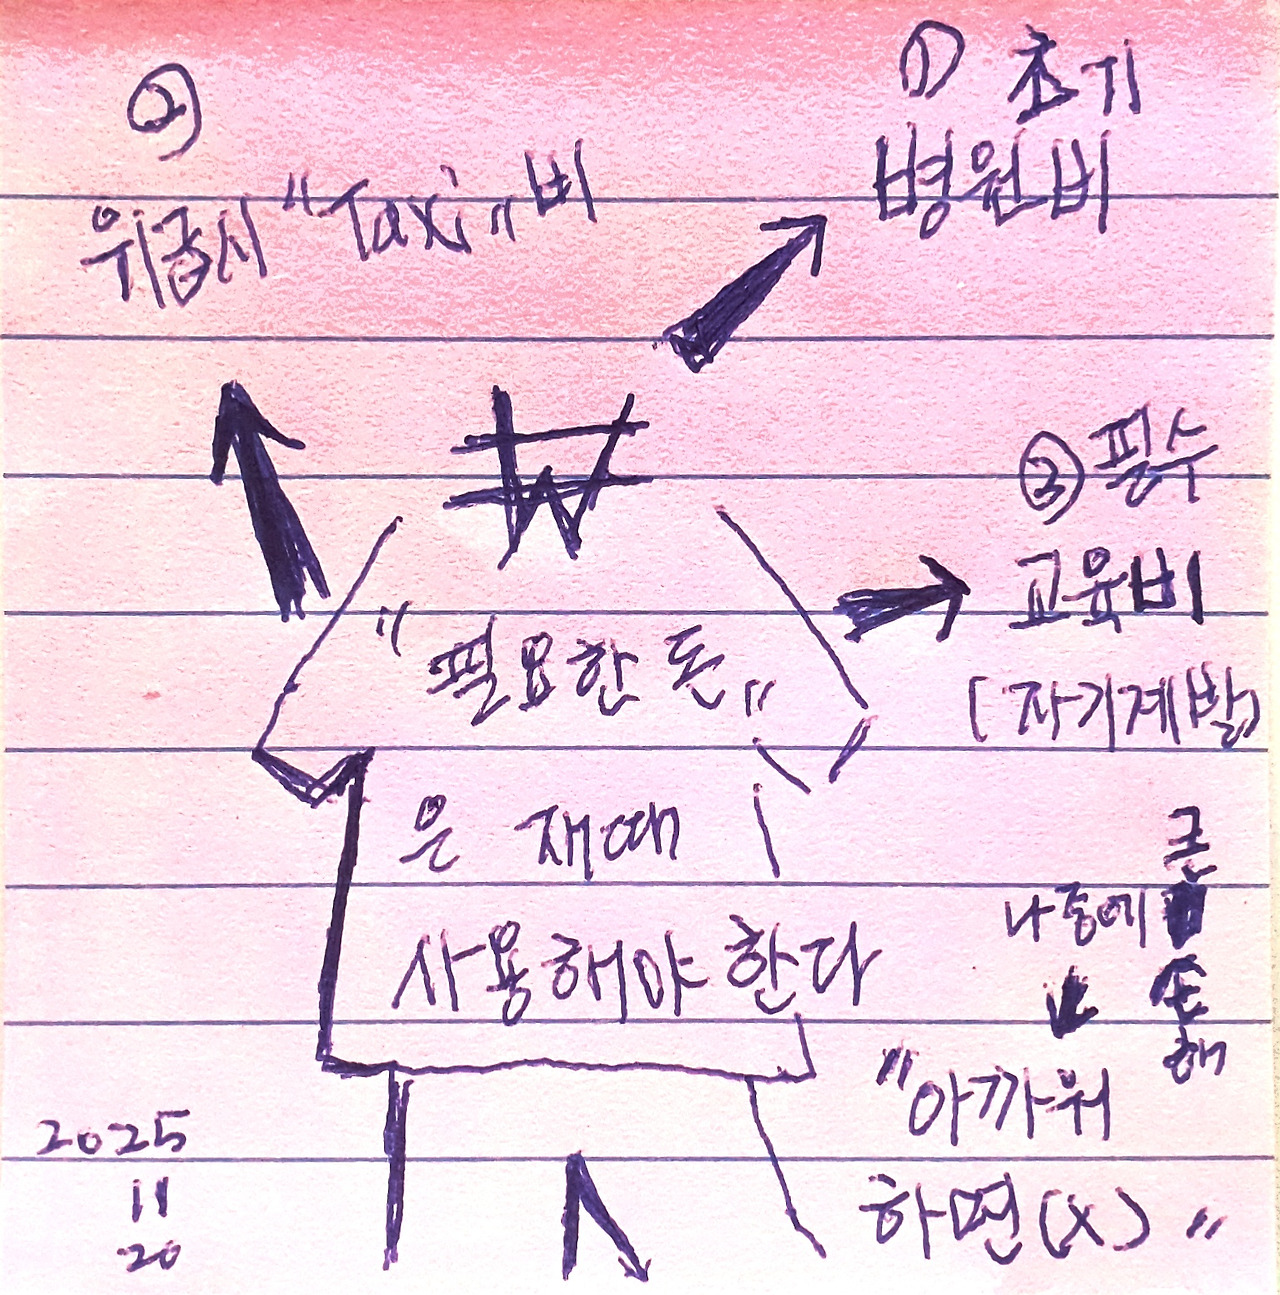 ① 초기
병원비
②
위급시 "Taxi" 비
₩
③ 필수
교육비
[자기계발]
"필요한 돈"
은 재때
사용해야 한다
나중에 큰
손해
"아까워
하면(x)"
2025
11
20